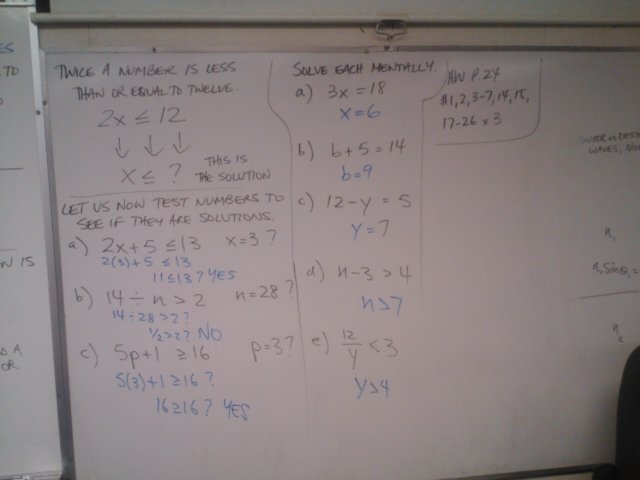 TWICE A NUMBER IS LESS
THAN OR EQUAL TO TWELVE.
2x ≤ 12
↓ ↓ ↓
x ≤ ?
THIS IS
THE SOLUTION
LET US NOW TEST NUMBERS TO
SEE IF THEY ARE SOLUTIONS.
a) 2x+5 ≤13 x=3?
2(3)+5 ≤13
11≤13? YES
b) 14 ÷ n > 2 n=28?
14÷28>2?
1/2>2? NO
c) 5p+1 ≥16 p=3?
5(3)+1≥16?
16≥16? YES
SOLVE EACH MENTALLY.
a) 3x = 18
x=6
b) b+5 = 14
b=9
c) 12-y = 5
y=7
d) n-3 > 4
n>7
e) 12/y < 3
y>4
HW P. 24
#1,2,3-7,14,15,
17-26 x 3
ES
TO
N IS
A
OR
WAVES,
n1
n1 Sinθ1 =
n2